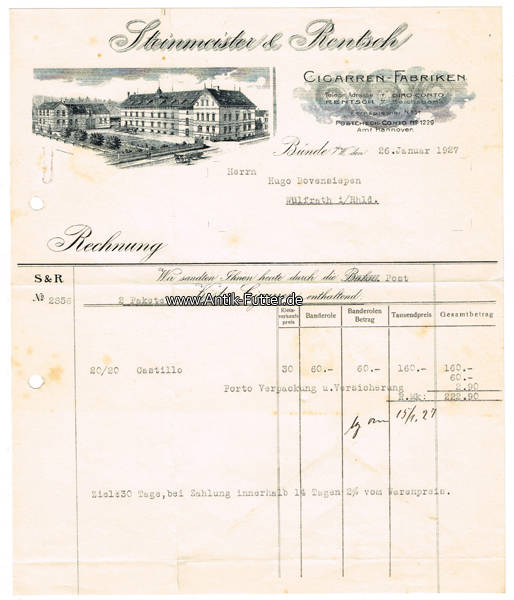 Steinmeister & Rentsch
CIGARREN-FABRIKEN
Telegr. Adresse: GIRO-CONTO
RENTSCH Reichsbank
Fernsprecher Nº
POSTCHECK-CONTO Nº 1229
Amt Hannover.
Bünde i/W. den 26.Januar 1927
Herrn
Hugo Bovensiepen
Wülfrath i/Rhld.
Rechnung
S & R
Nº 2856
Wir sandten Ihnen heute durch die Bahn Post
2 Pakete
www.Antik-Futter.de
enthaltend
Klein-verkaufs-preis Banderole Banderolen Betrag Tausendpreis Gesamtbetrag
20/20 Castillo 30 60.- 60.- 160.- 160.-
60.-
Porto Verpackung u.Versicherung 2.90
R.Mk: 222.90
15/1.27
Ziel:30 Tage,bei Zahlung innerhalb 14 Tagen 2% vom Warenpreis.